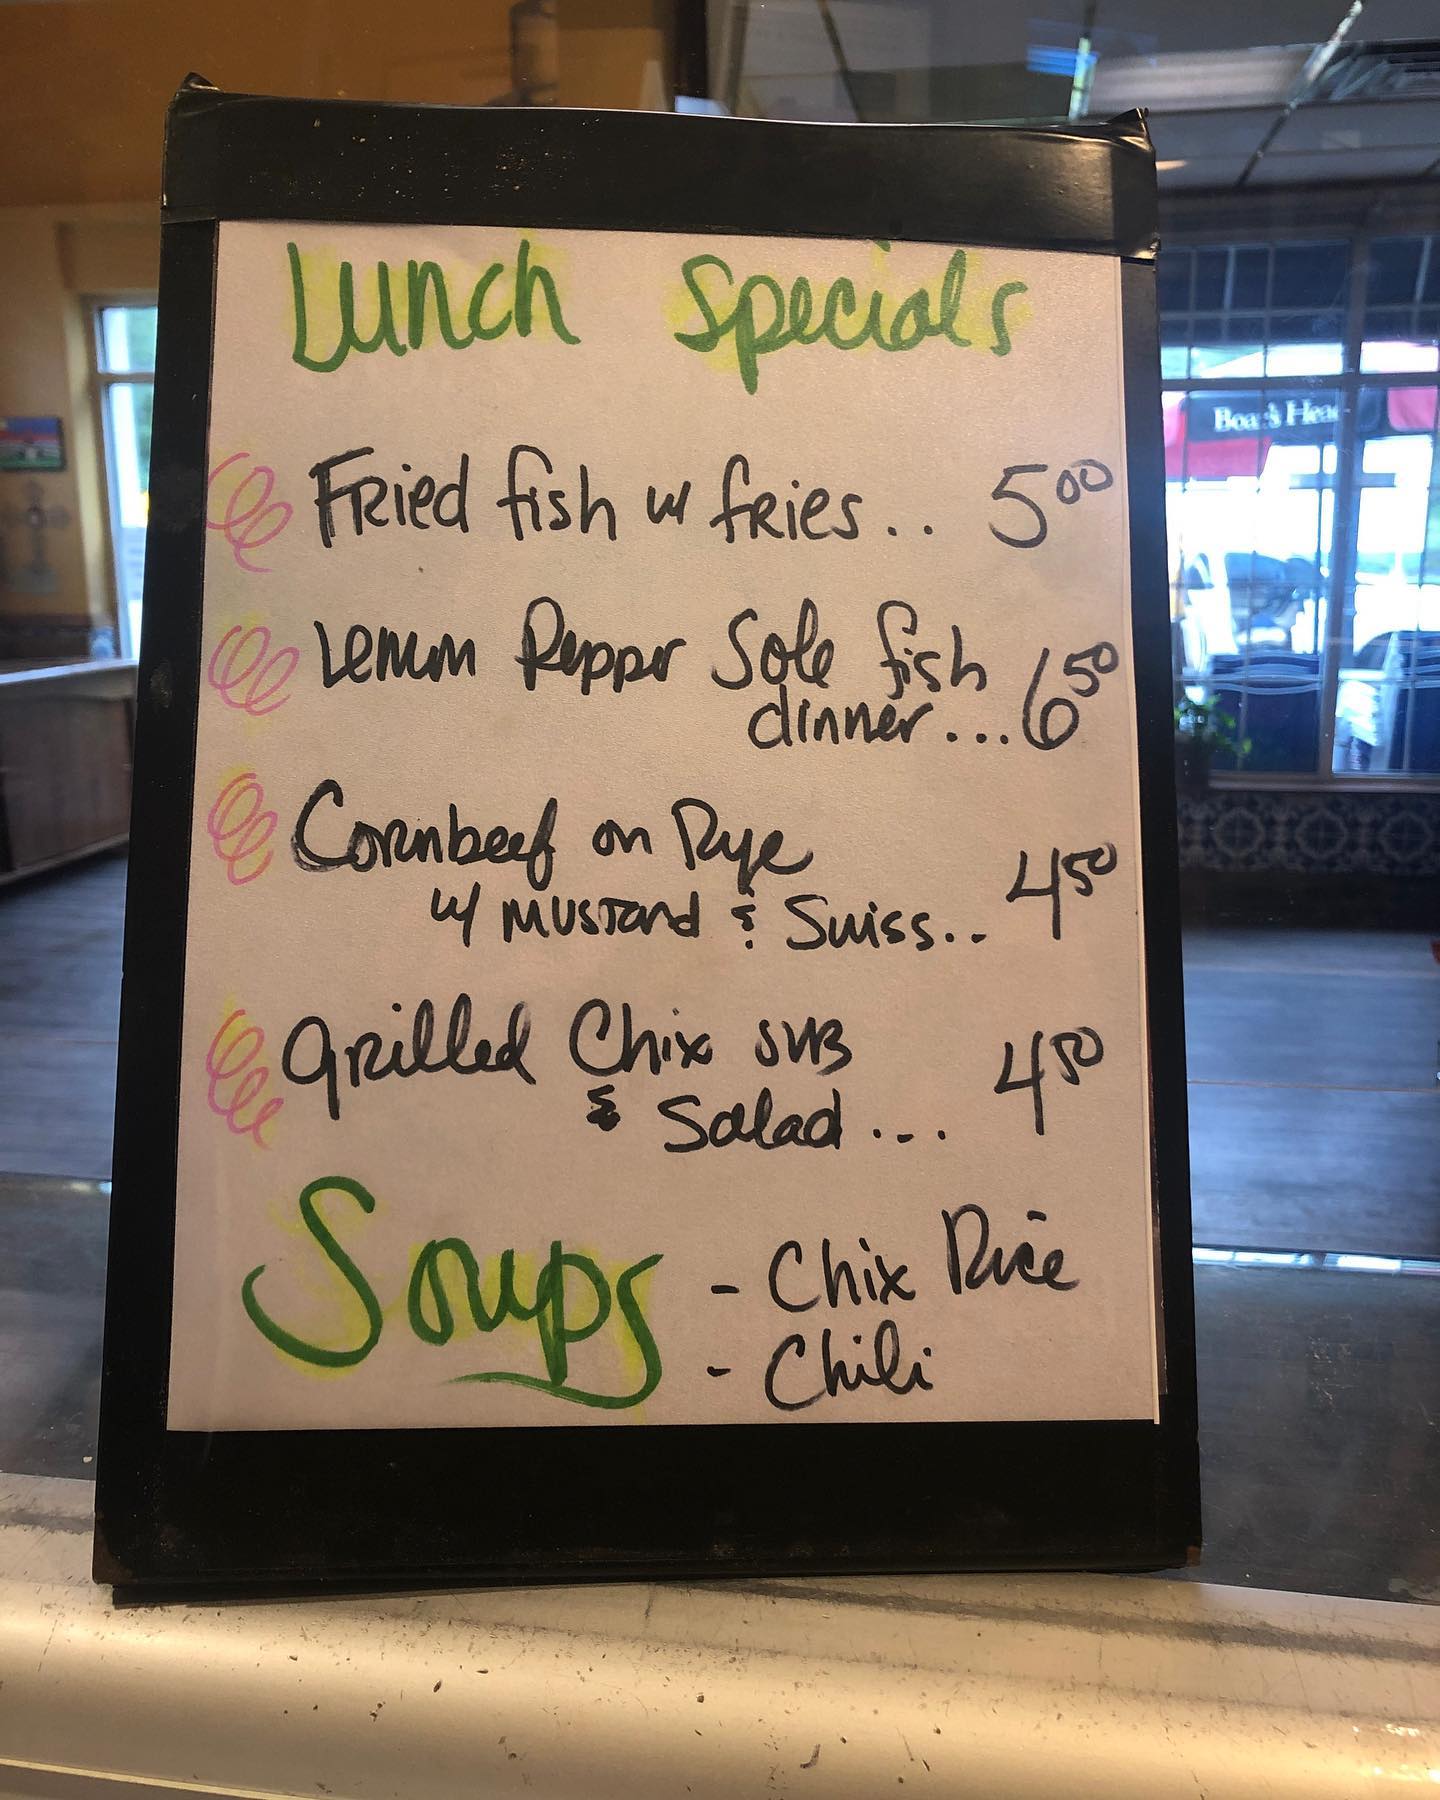 Lunch Specials
Fried fish w/ fries.. 5⁰⁰
Lemon Pepper Sole fish
dinner... 6⁵⁰
Cornbeef on Rye
w/ Mustard & Swiss.. 4⁵⁰
Grilled Chix SUB
& Salad... 4⁵⁰
Soups - Chix Rice
- Chili
Boar's Head